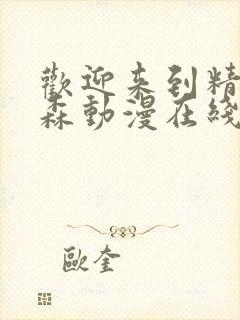 歡迎来到精
森動漫在綫
歐奎